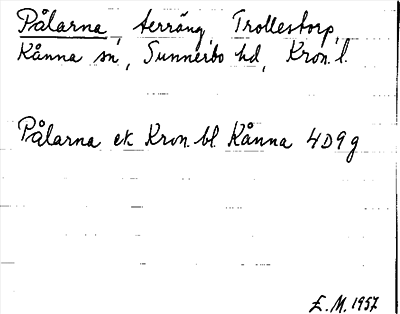 Pålarna, terräng, Trollestorp,
Kånna sn, Sunnerbo hd, Kron. l.
Pålarna ek Kron. bl. Kånna 4D9g
E.M. 1957